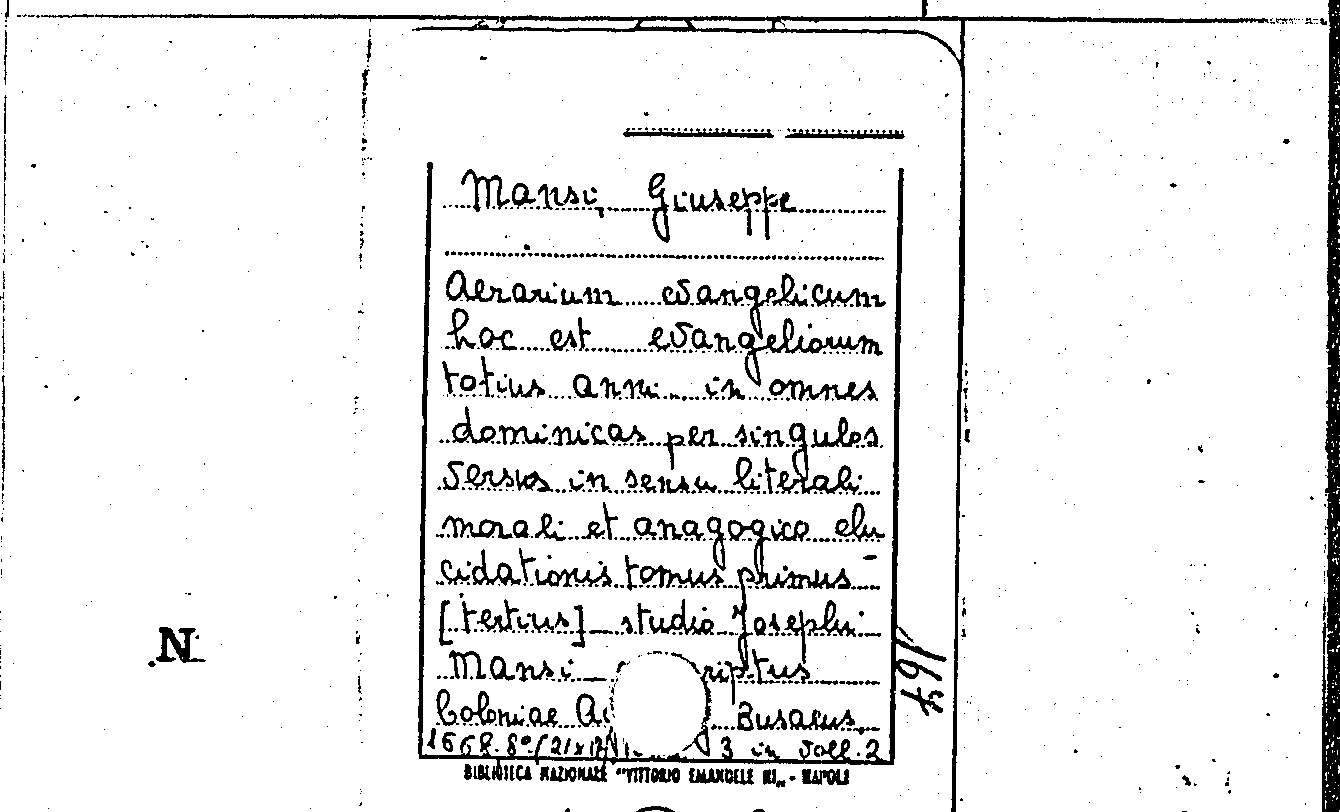 Mansi, Giuseppe
Aerarium evangelicum
hoc est evangeliorum
totius anni in omnes
dominicas per singulos
versos in sensu literali
morali et anagogico elu
cidationis tomus primus -
[tertius] studio Josephi
Mansi riptus
Coloniae Busaeus,
1668. 8° (21x 3 in voll. 2
BIBLIOTECA NAZIONALE "VITTORIO EMANUELE III" - NAPOLI
N